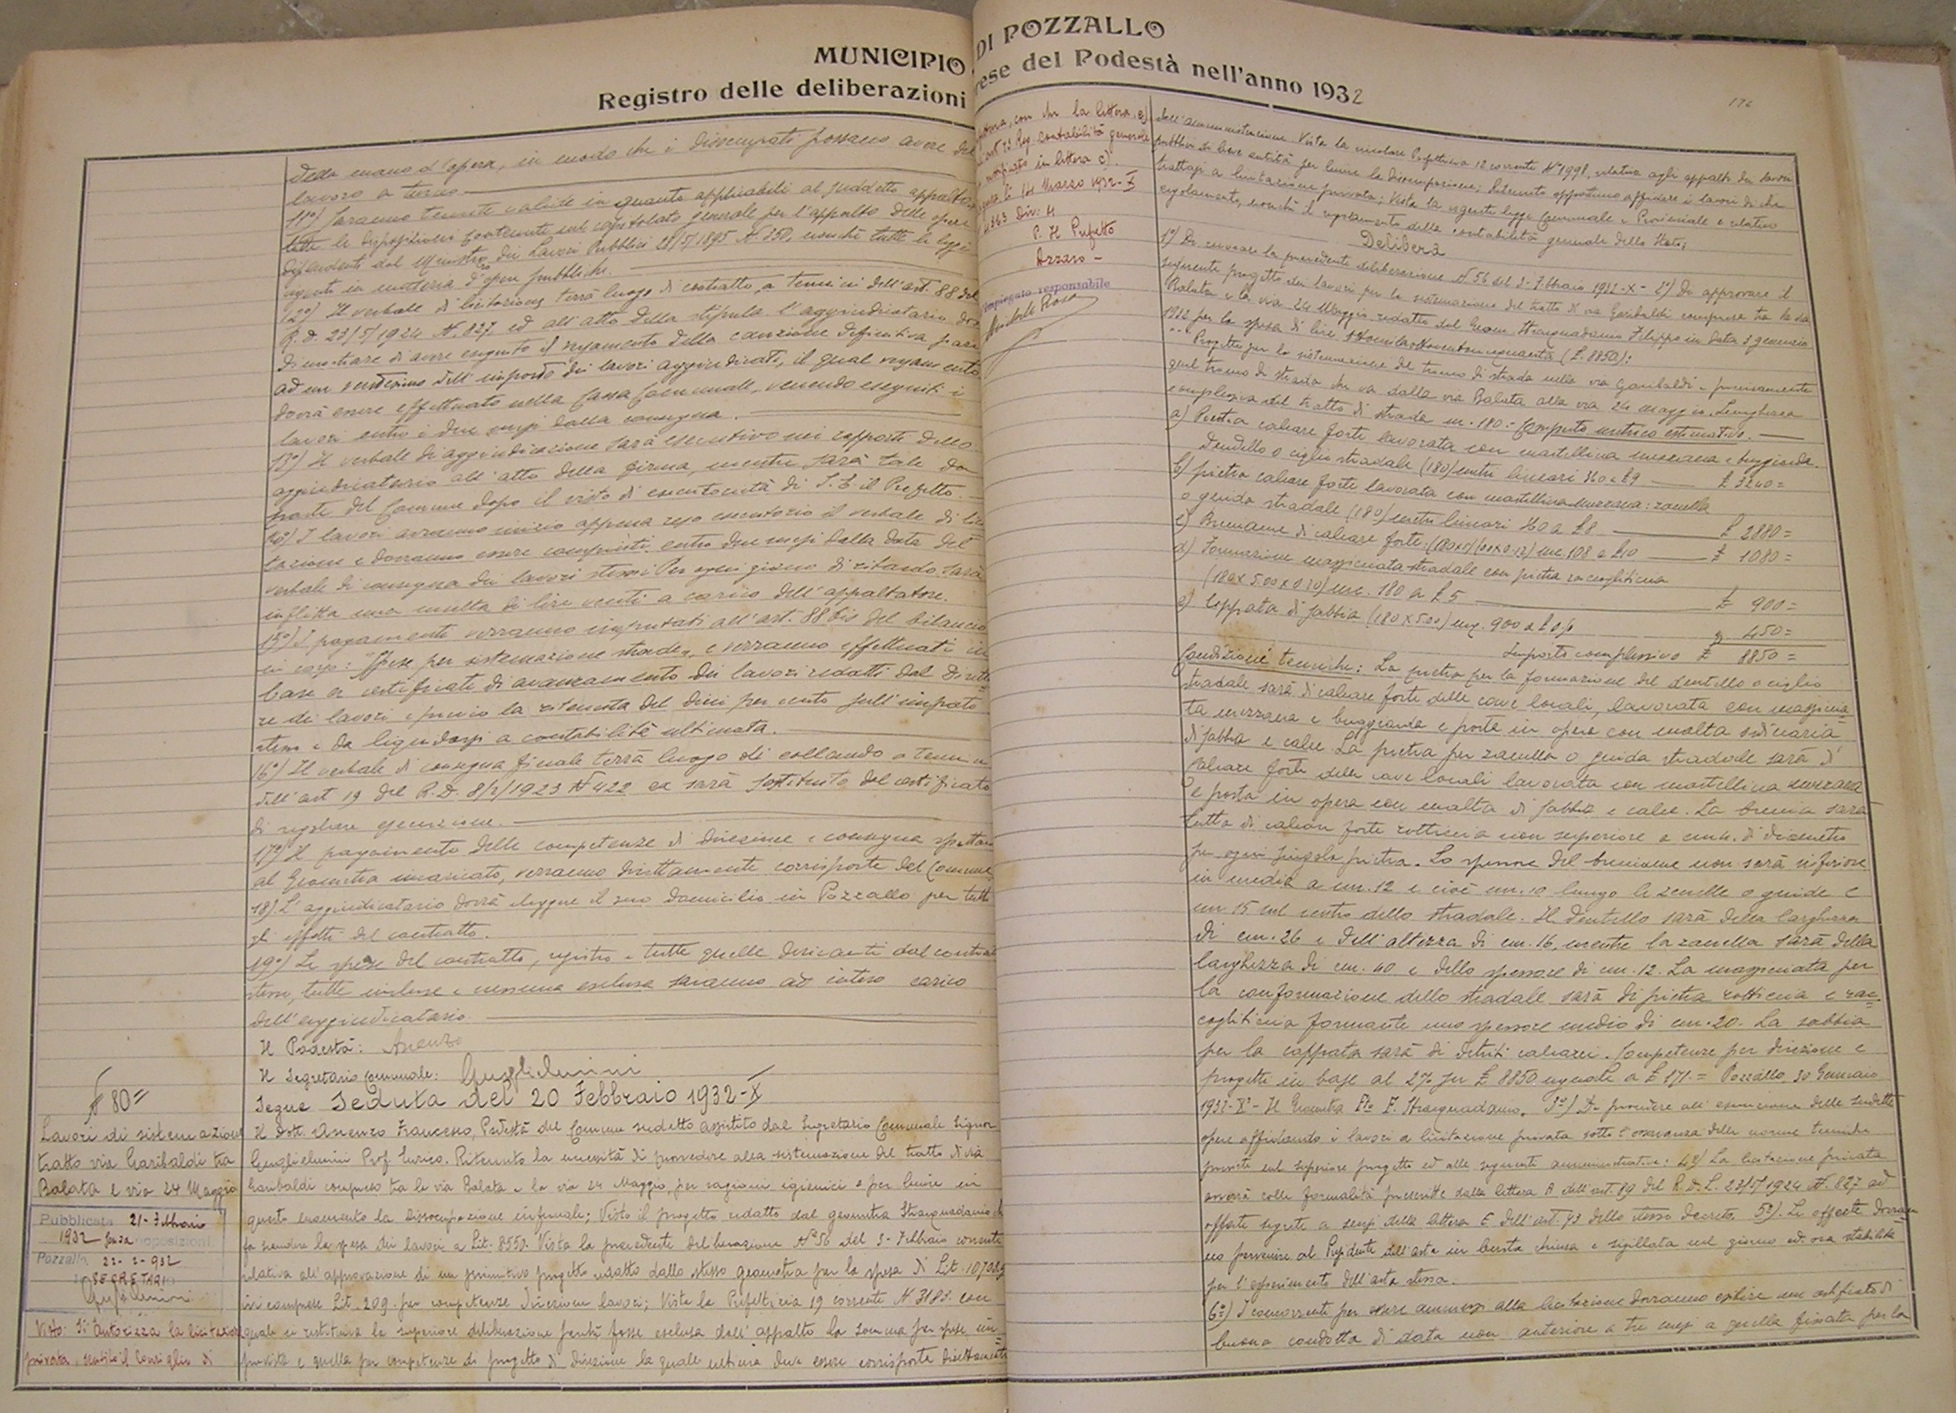 MUNICIPIO DI POZZALLO
Registro delle deliberazioni prese del Podestà nell'anno 1932
176
della mano d'opera, in modo che i disoccupati possano avere del
lavoro a turno
11°) Saranno tenute valide in quanto applicabili al suddetto appalto
tutte le disposizioni contenute nel capitolato generale per l'appalto delle opere
dipendenti dal Ministro dei Lavori Pubblici 28/5/1895 N. 350, nonché tutte le leggi
vigenti in materia d'opere pubbliche.
12°) Il verbale di licitazione terrà luogo di contratto, a termini dell'art. 88 del
R.D. 23/5/1924 N. 827 ed all'atto della stipula l'aggiudicatario dovrà
dimostrare di avere eseguito il versamento della cauzione definitiva pari
ad un ventesimo dell'importo dei lavori aggiudicati, il qual versamento
dovrà essere effettuato nella Cassa Comunale, venendo eseguiti i
lavori entro i due mesi dalla consegna.
13°) Il verbale di aggiudicazione sarà esecutivo nei rapporti dello
aggiudicatario all'atto della firma, mentre sarà tale da
parte del Comune dopo il visto di esecutorietà di S.E. il Prefetto.
14°) I lavori avranno inizio appena reso esecutorio il verbale di lici
tazione e dovranno essere compiuti entro due mesi dalla data del
verbale di consegna dei lavori stessi. Per ogni giorno di ritardo sarà
inflitta una multa di lire venti a carico dell'appaltatore.
15°) I pagamenti verranno imputati all'art. 88 bis del bilancio
in corso: "Spese per sistemazione strade", e verranno effettuati in
base a certificati di avanzamento dei lavori redatti dal Diretto
re dei lavori e previo la ritenuta del dieci per cento sull'importo
stesso e da liquidarsi a contabilità ultimata.
16°) Il verbale di consegna finale terrà luogo di collaudo a termini
dell'art 19 del R.D. 8/2/1923 N 422 ed sarà sostituito del certificato
di regolare esecuzione.
17°) Il pagamento delle competenze di direzione e consegna spettan
al Geometra incaricato, verranno direttamente corrisposte del Comune
18) L'aggiudicatario dovrà eleggere il suo domicilio in Pozzallo per tutti
gli effetti del contratto.
19°) Le spese del contratto, registro e tutte quelle derivanti dal contratto
stesso, tutte incluse e nessuna esclusa saranno ad intero carico
dell'aggiudicatario
Il Podestà: Avenzo
Il Segretario Comunale: Guglielmini
Segue Seduta del 20 Febbraio 1932-X
N 80=
Lavori di sistemazione
tratto via Garibaldi tra
Balata e via 24 Maggio
Pubblicata 21- Febbraio
1932 opposizioni
Pozzallo 22-2-932
SEGRETARIO
Guglielmini
Visto: Si autorizza la licitazione
privata, sentito il Consiglio di
Il Dott. Avenzo Francesco, Podestà del Comune suddetto assistito dal Segretario Comunale Signor
Guglielmini Prof. Enrico. Ritenuto la necessità di provvedere alla sistemazione del tratto di via
Garibaldi compreso tra la via Balata e la via 24 Maggio, per ragioni igieniche e per lenire in
questo momento la disoccupazione invernale; Visto il progetto redatto dal geometra Stracquadanio
la spesa dei lavori a Lit. 8550. Vista la precedente deliberazione N° 56 del 3- Febbraio corrente
relativa all'approvazione di un primitivo progetto redatto dallo stesso geometra per la spesa di Lit.
ivi comprese Lit. 209. per competenze direzione lavori; Vista la Prefettizia 19 corrente N 3183 con
quale si restituiva la superiore deliberazione perché fosse esclusa dall'appalto la somma per spese im=
previste e quella per competenze di progetto di direzione la quale ultima deve essere corrisposta direttamente
Prefettura, con che la lettera e)
art 73 Reg. contabilità generale
in lettera c).
li 14 Marzo 1932-X
N 863 Div. 4
P. Il Prefetto
Azzaro -
Impiegato responsabile
dall'amministrazione. Vista la circolare Prefettizia 12 corrente N° 1998, relativa agli appalti dei lavori
pubblici di lieve entità per lenire la disoccupazione; Ritenuto opportuno affidare i lavori di che
trattasi a licitazione privata; Vista la vigente legge Comunale e Provinciale e relativo
regolamento, nonché il regolamento della contabilità generale dello Stato;
Delibera
1°) Di revocare la precedente deliberazione N. 56 del 3- Febbraio 1932-X- 2°) Di approvare il
seguente progetto dei lavori per la sistemazione del tratto di via Garibaldi compreso tra la via
Balata e la via 24 Maggio redatto dal Geom. Stracquadanio Filippo in data 3 gennaio
1932 per la spesa di lire ottomilaottocentocinquanta (£. 8850):
"Progetto per la sistemazione del tronco di strada nella via Garibaldi e precisamente
quel tronco di strada che va dalla via Balata alla via 24 maggio. Lunghezza
complessiva del tratto di strada m. 180.= Computo metrico estimativo.
a) Pietra calcare forte lavorata con martellina mezzana e buggiarda.
dentello o ciglio stradale (180) metri lineari 360 a £ 9 £ 3240=
b) pietra calcare forte lavorata con martellina mezzana: zanella
o guida stradale (180) metri lineari 360 a £ 8 £ 2880=
c) Brecciame di calcare forte: mc 108 a £ 10 £ 1080=
d) Formazione massicciata stradale con pietra raccogliticcia
(180 x 5.00 x 0.20) mc. 180 a £ 5 £ 900=
e) Coppata di sabbia (180 x 5.00) mq. 900 a £ 0,50 " 450=
Importo complessivo £ 8850=
Condizioni tecniche: La pietra per la formazione del dentello o ciglio
stradale sarà di calcare forte delle cave locali, lavorata con
mezzana e buggiarda e posta in opera con malta ordinaria
di sabbia e calce. La pietra per zanella o guida stradale sarà di
calcare forte delle cave locali lavorata con martellina mezzana
e posta in opera con malta di sabbia e calce. La breccia sarà
tutta di calcare forte rotticcia non superiore a cm. di diametro
per ogni singola pietra. Lo spessore del brecciame non sarà inferiore
in media a cm. 12 e cioè cm. 10 lungo le zanelle o guide e
cm 15 nel centro dello stradale. Il dentello sarà della larghezza
di cm. 26 e dell'altezza di cm. 16, mentre la zanella sarà della
larghezza di cm. 40 e dello spessore di cm. 12. La massicciata per
la conformazione dello stradale sarà di pietra rotticcia e rac=
cogliticcia formante uno spessore medio di cm. 20. La sabbia
per la coppata sarà di detriti calcarei. Competenze per direzione e
progetto in base al 2% su £ 8850 uguale a £ 177.= Pozzallo 30 Gennaio
1932-X°- Il Geometra F.to F. Stracquadanio. 3°) Di provvedere all'esecuzione delle suddette
opere affidando i lavori a licitazione privata sotto l'osservanza delle norme tecniche
previste nel superiore progetto ed alle seguenti amministrative: 4°) La licitazione privata
avverrà colle formalità prescritte dalla lettera A dell'art. 89 del R.D.L. 23/5/1924 N. 827 ad
offerte segrete a sensi della lettera C dell'art. 73 dello stesso decreto. 5°) Le offerte dovran
no pervenire al Presidente dell'asta in busta chiusa e sigillata nel giorno ed ora stabilite
per l'esperimento dell'asta stessa.
6°) I concorrenti per essere ammessi alla licitazione dovranno esibire un certificato di
buona condotta di data non anteriore a tre mesi a quella fissata per la